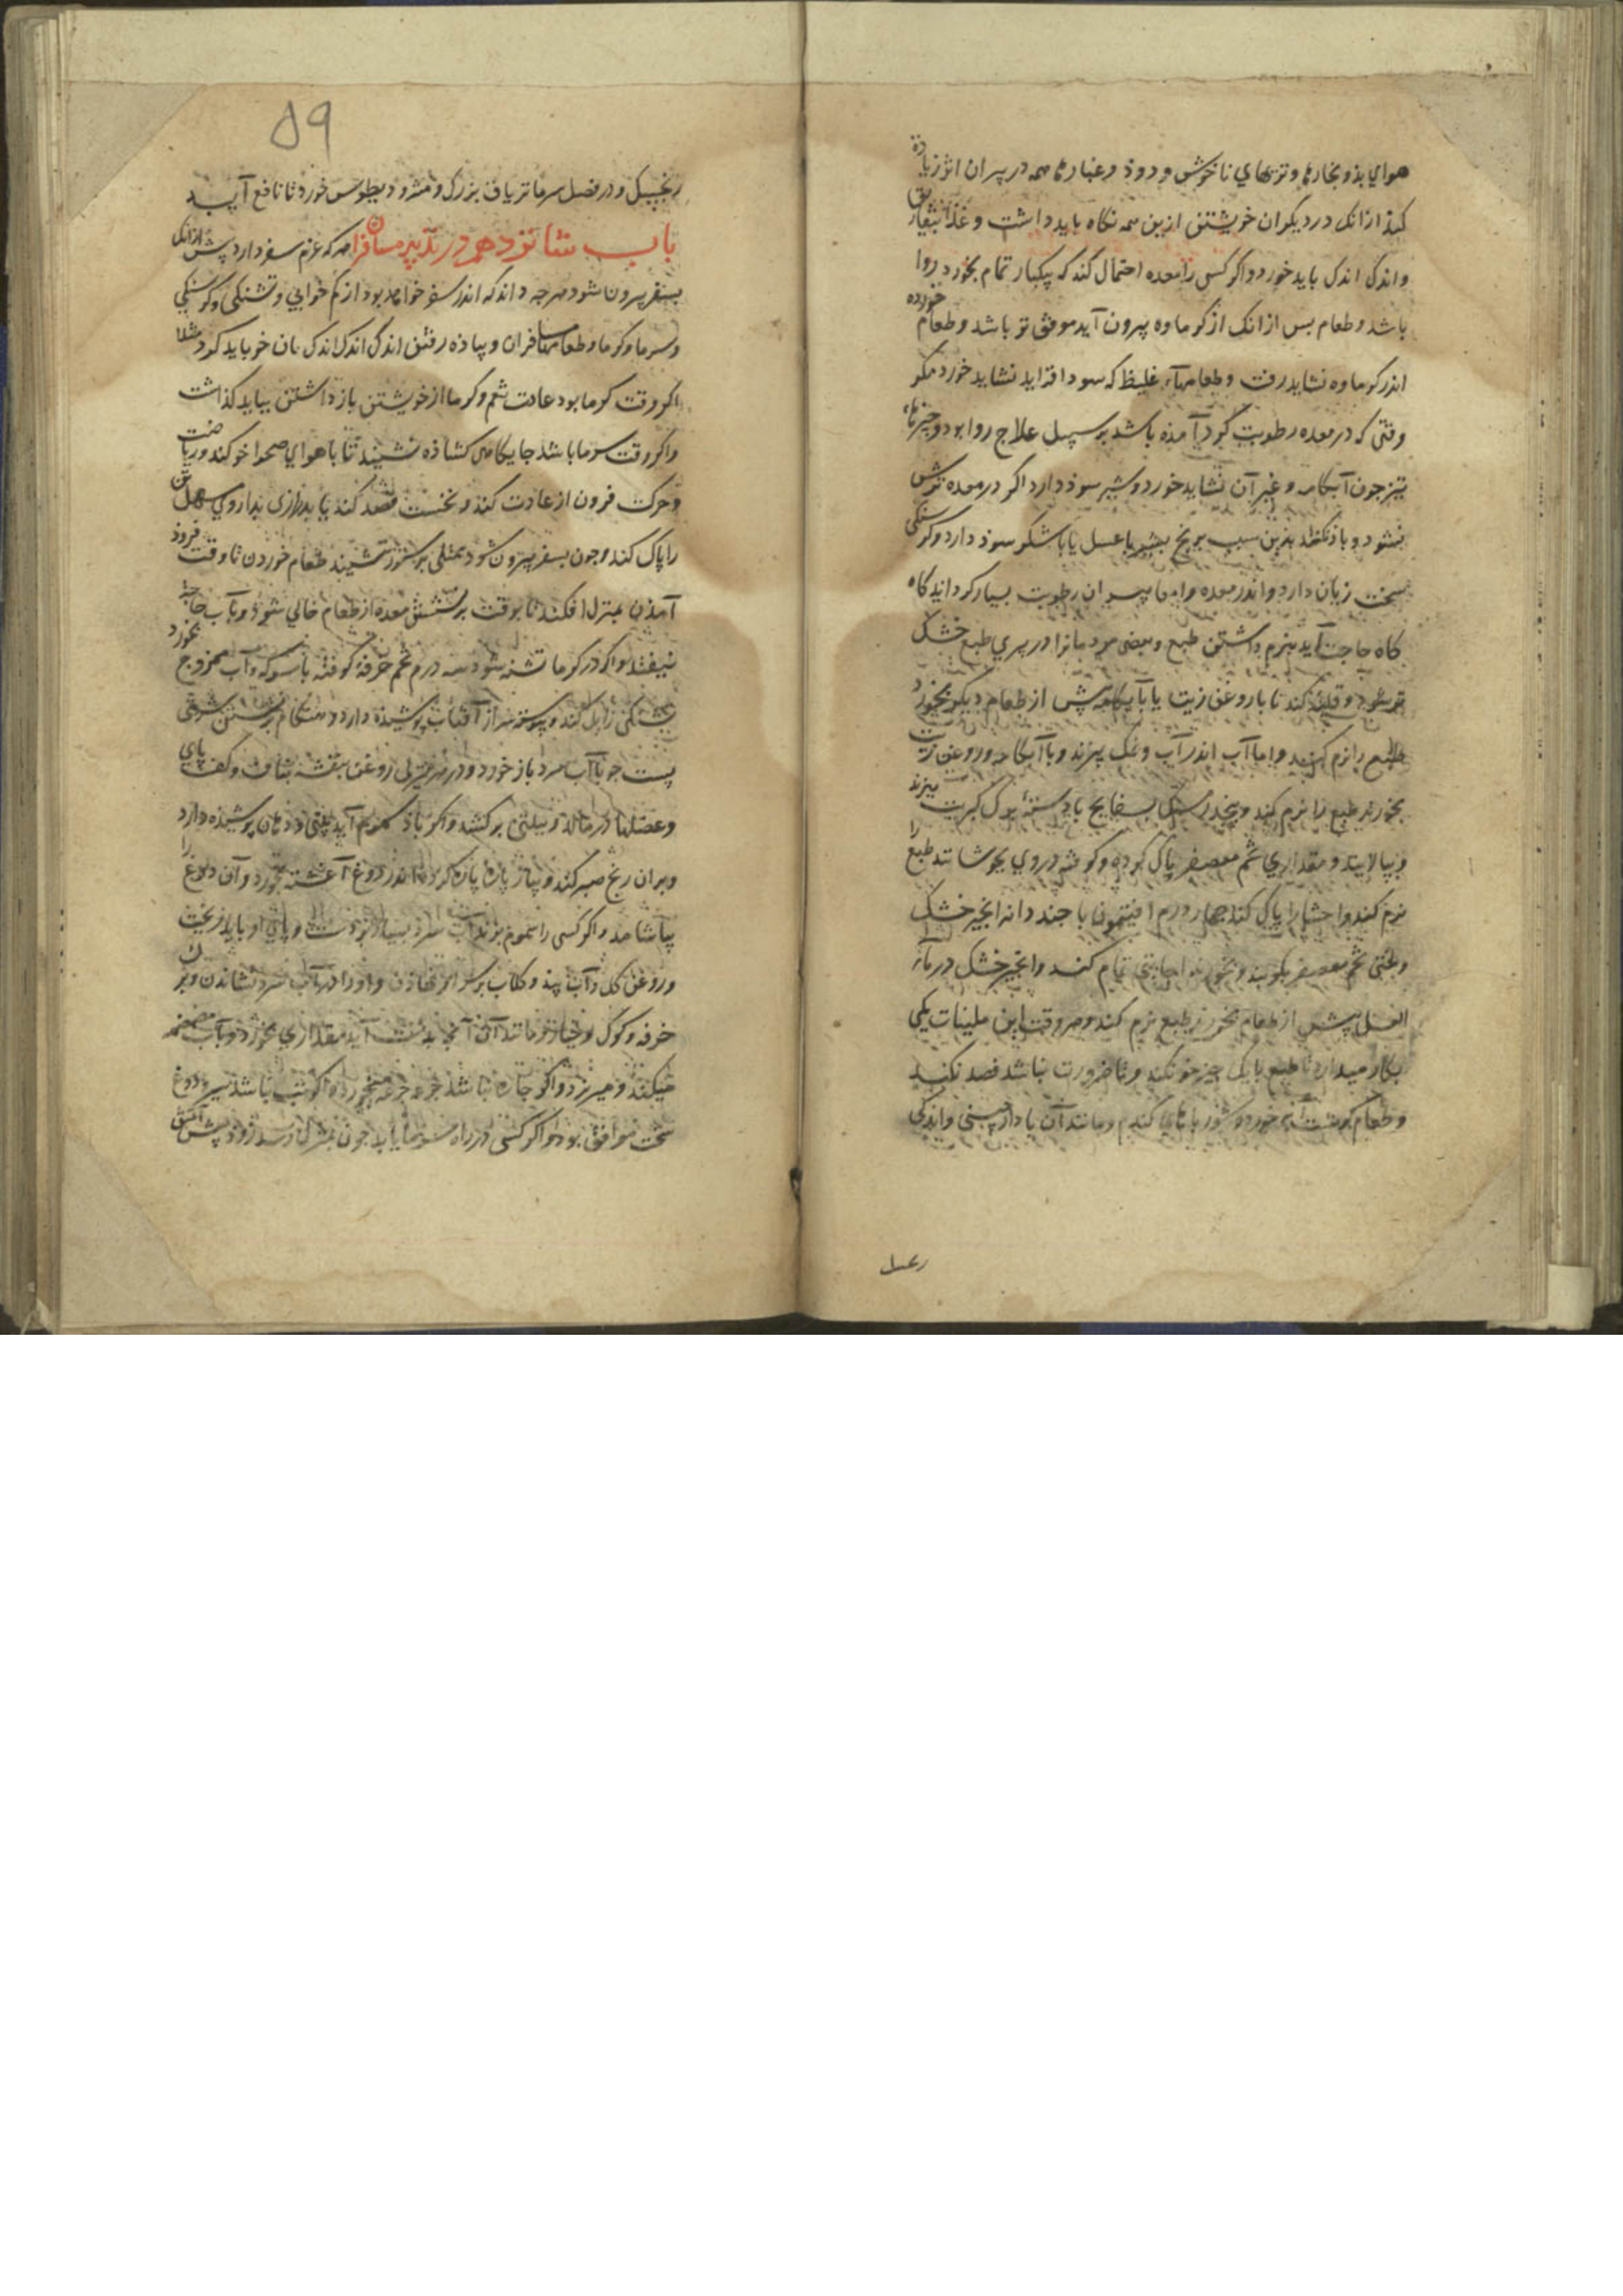 هواي بذ و بخارها و تریهاي ناخوش و دوذ و غبارها همه در پیران اثر زیاده
کنذ از انک در دیکران خویشتن ازین همه نکاه باید داشت و غذا بتفاریق
و اندک اندک باید خورد و اکر کسی را معده احتمال کند که بیکبار تمام بخورد روا
باشد و طعام بس از انک از کرماوه بیرون آید موفق تر باشد و طعام خورده
اندر کرماوه نشاید رفت و طعامهاء غلیظ که سودا فزاید نشاید خورد مکر
وقتی که در معده رطوبت کرد آمذه باشد بر سبیل علاج روا بود و چیزهاء
تیز جون آبکامه و غیر آن نشاید خورد و شیر سوذ دارد اکر در معده ترش
نشود و باذ نکند بدین سبب برنج بشیر با عسل یا با شکر سوذ دارد و کرسنکی
سخت زیان دارد و اندر معده و امعا پیران رطوبت بسیار کرد آید کاه
کاه حاجت آید بنرم داشتن طبع و بعضی مردمانرا در پیري طبع خشک
تر شود و قلیه کند تا با روغن زیت یا بآبکامه پیش از طعام دیکر بخورد
طبع را نرم کند و اما آب اندر آب و نمک پزند و با آبکامه و روغن زیت
بخورند طبع را نرم کند و بچند درمسنک بسفایج با دسته برک کرنب بپزند
و بپالایند و مقداري تخم معصفر پاک کرده و کوفته در وي بجوشانند طبع را
نرم کند و احشا را پاک کند چهار درم افتیمون با جند دانه انجیر خشک
و لختی تخم معصفر بکوبند و بخورند اجابتی تمام کند و انجیر خشک در ماء
العسل پیش از طعام بخورند طبع نرم کند و هر وقت ازین ملینات یکی
بکار میدارد تا طبع با یک چیز خو نکند و تا ضرورت نباشد فصد نکند
و طعام کوشت خورد و شوربا کندم و مانند آن با دارچینی و اندکی
زنجبیل
۵۹
زنجبیل و در فصل سرما تریاق بزرک و مثرودیطوس خورد تا نافع آید
باب شانزدهم در تدبیر مسافران هر که عزم سفر دارد پیش از انک
بسفر بیرون شود هرچه داند که اندر سفر خواهد بود از کم خوابي و تشنکی و کرسنکي
و سرما و کرما و طعامهاء مسافران و پیاذه رفتن اندک اندک بان خو باید کرد مثلا
اکر وقت کرما بود عادت شم و کرما از خویشتن باز داشتن بباید کذاشت
و اکر وقت سرما باشد جایکاهی کشاذه نشیند تا با هواي صحرا خو کند و ریاضت
و حرکت فزون از عادت کند و نخست فصد کند یا بدارویي سهل تن
را پاک کند و جون بسفر بیرون شود ممتلی بر ستور ننشیند طعام خوردن تا وقت فروذ
آمذن بمنزل افکند تا بوقت بر نشستن معده از طعام خالي شود و بآب حاجت
نیفتد و اکر در کرما تشنه شود سه درم تخم خرفه کوفته با سرکه و آب ممزوج بخورد
تشنکی زایل کند و پیوسته سر از آفتاب پوشیذه دارد و هنکام بر نشستن شربتی
پست جو با آب سرد باز خورد و در هر منزلی روغن بنفشه بناف و کف پاي
و عضلها در مالد و ببینی بر کشد و اکر باذ سموم آید بینی و دهان پوشیذه دارد
و بران رنج صبر کند و پیاز پاره پاره کرده اندر دوغ آغشته بخورد و آن دوغ را
بیاشامد و اکر کسی را سموم بزند آب سرد بسیار بر دست و پاي او باید ریخت
و روغن کل و آب بید و کلاب بر سر او نهاذن و او را در آب سرد نشاندن و برک
خرفه و کوک و خیار و مانند آن آنچه بدست آید مقداري بخورد و بآب مضمضه
میکند و میریزد و اکر چاره نباشد جرعه جرعه میخورد و اکر تب نباشد شیر و دوغ
سخت موافق بود و اکر کسی در راه سرما یابد جون بمنزل رسد زوذ پیش آتش